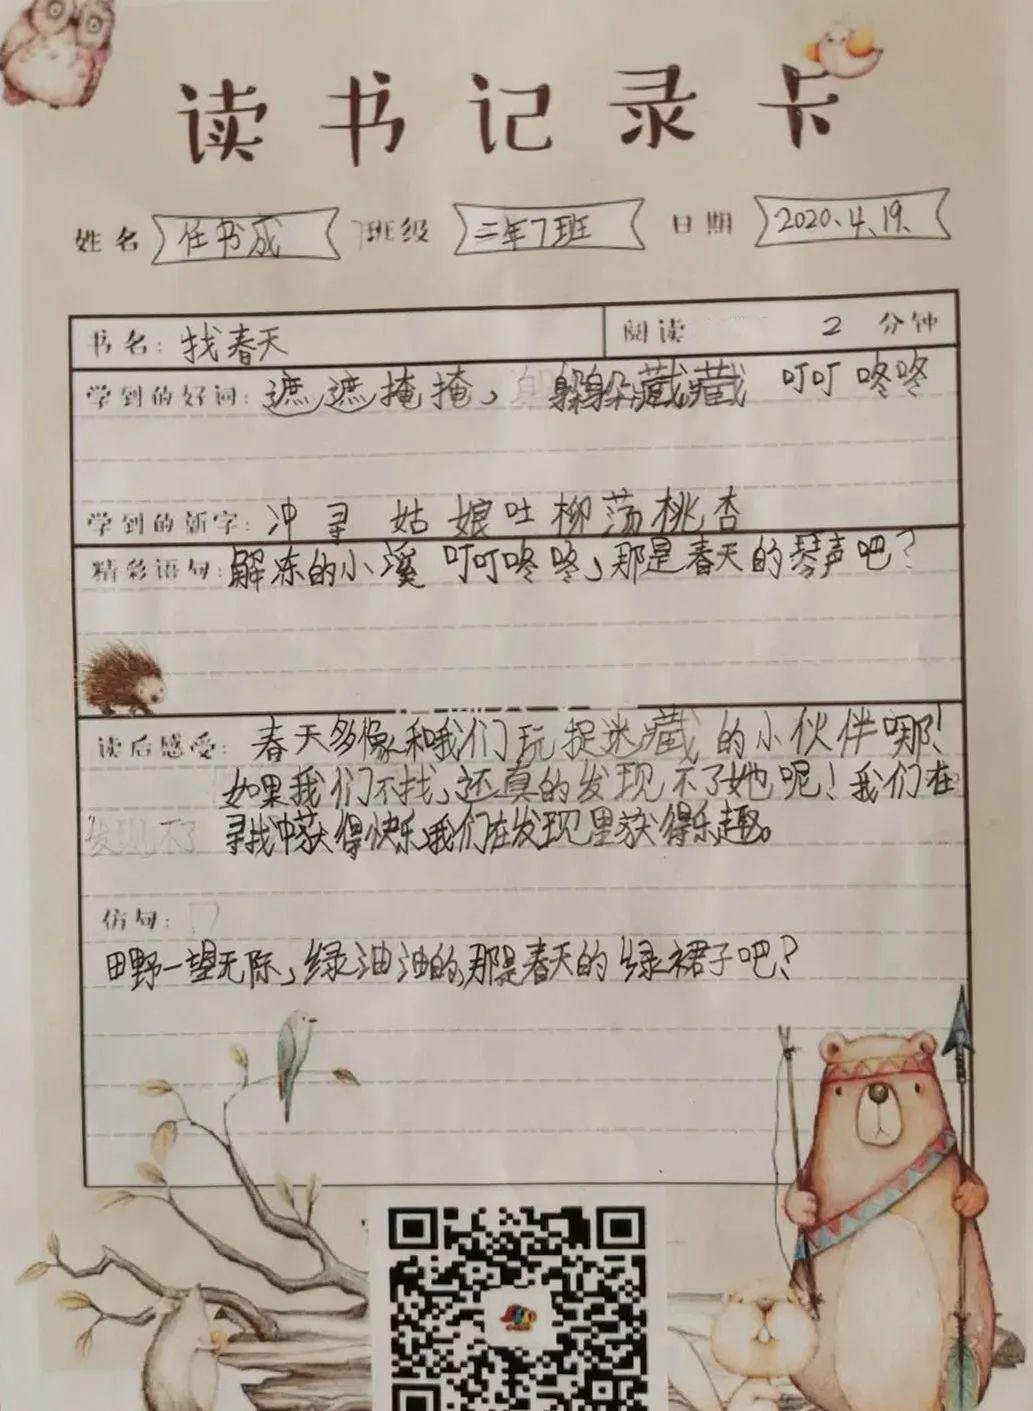 读书记录卡
姓名 任书成 班级 二年7班 日期 2020.4.19.
书名：找春天 阅读 2 分钟
学到的好词：遮遮掩掩、躲躲藏藏 叮叮咚咚
学到的新字：冲寻 姑娘吐柳荡桃杏
精彩语句：解冻的小溪叮叮咚咚，那是春天的琴声吧？
读后感受：春天多像和我们玩捉迷藏的小伙伴哪！
如果我们不找，还真的发现不了她呢！我们在
发现不了 寻找冲获得快乐，我们在发现里获得乐趣。
仿句：
田野一望无际，绿油油的，那是春天的绿裙子吧？